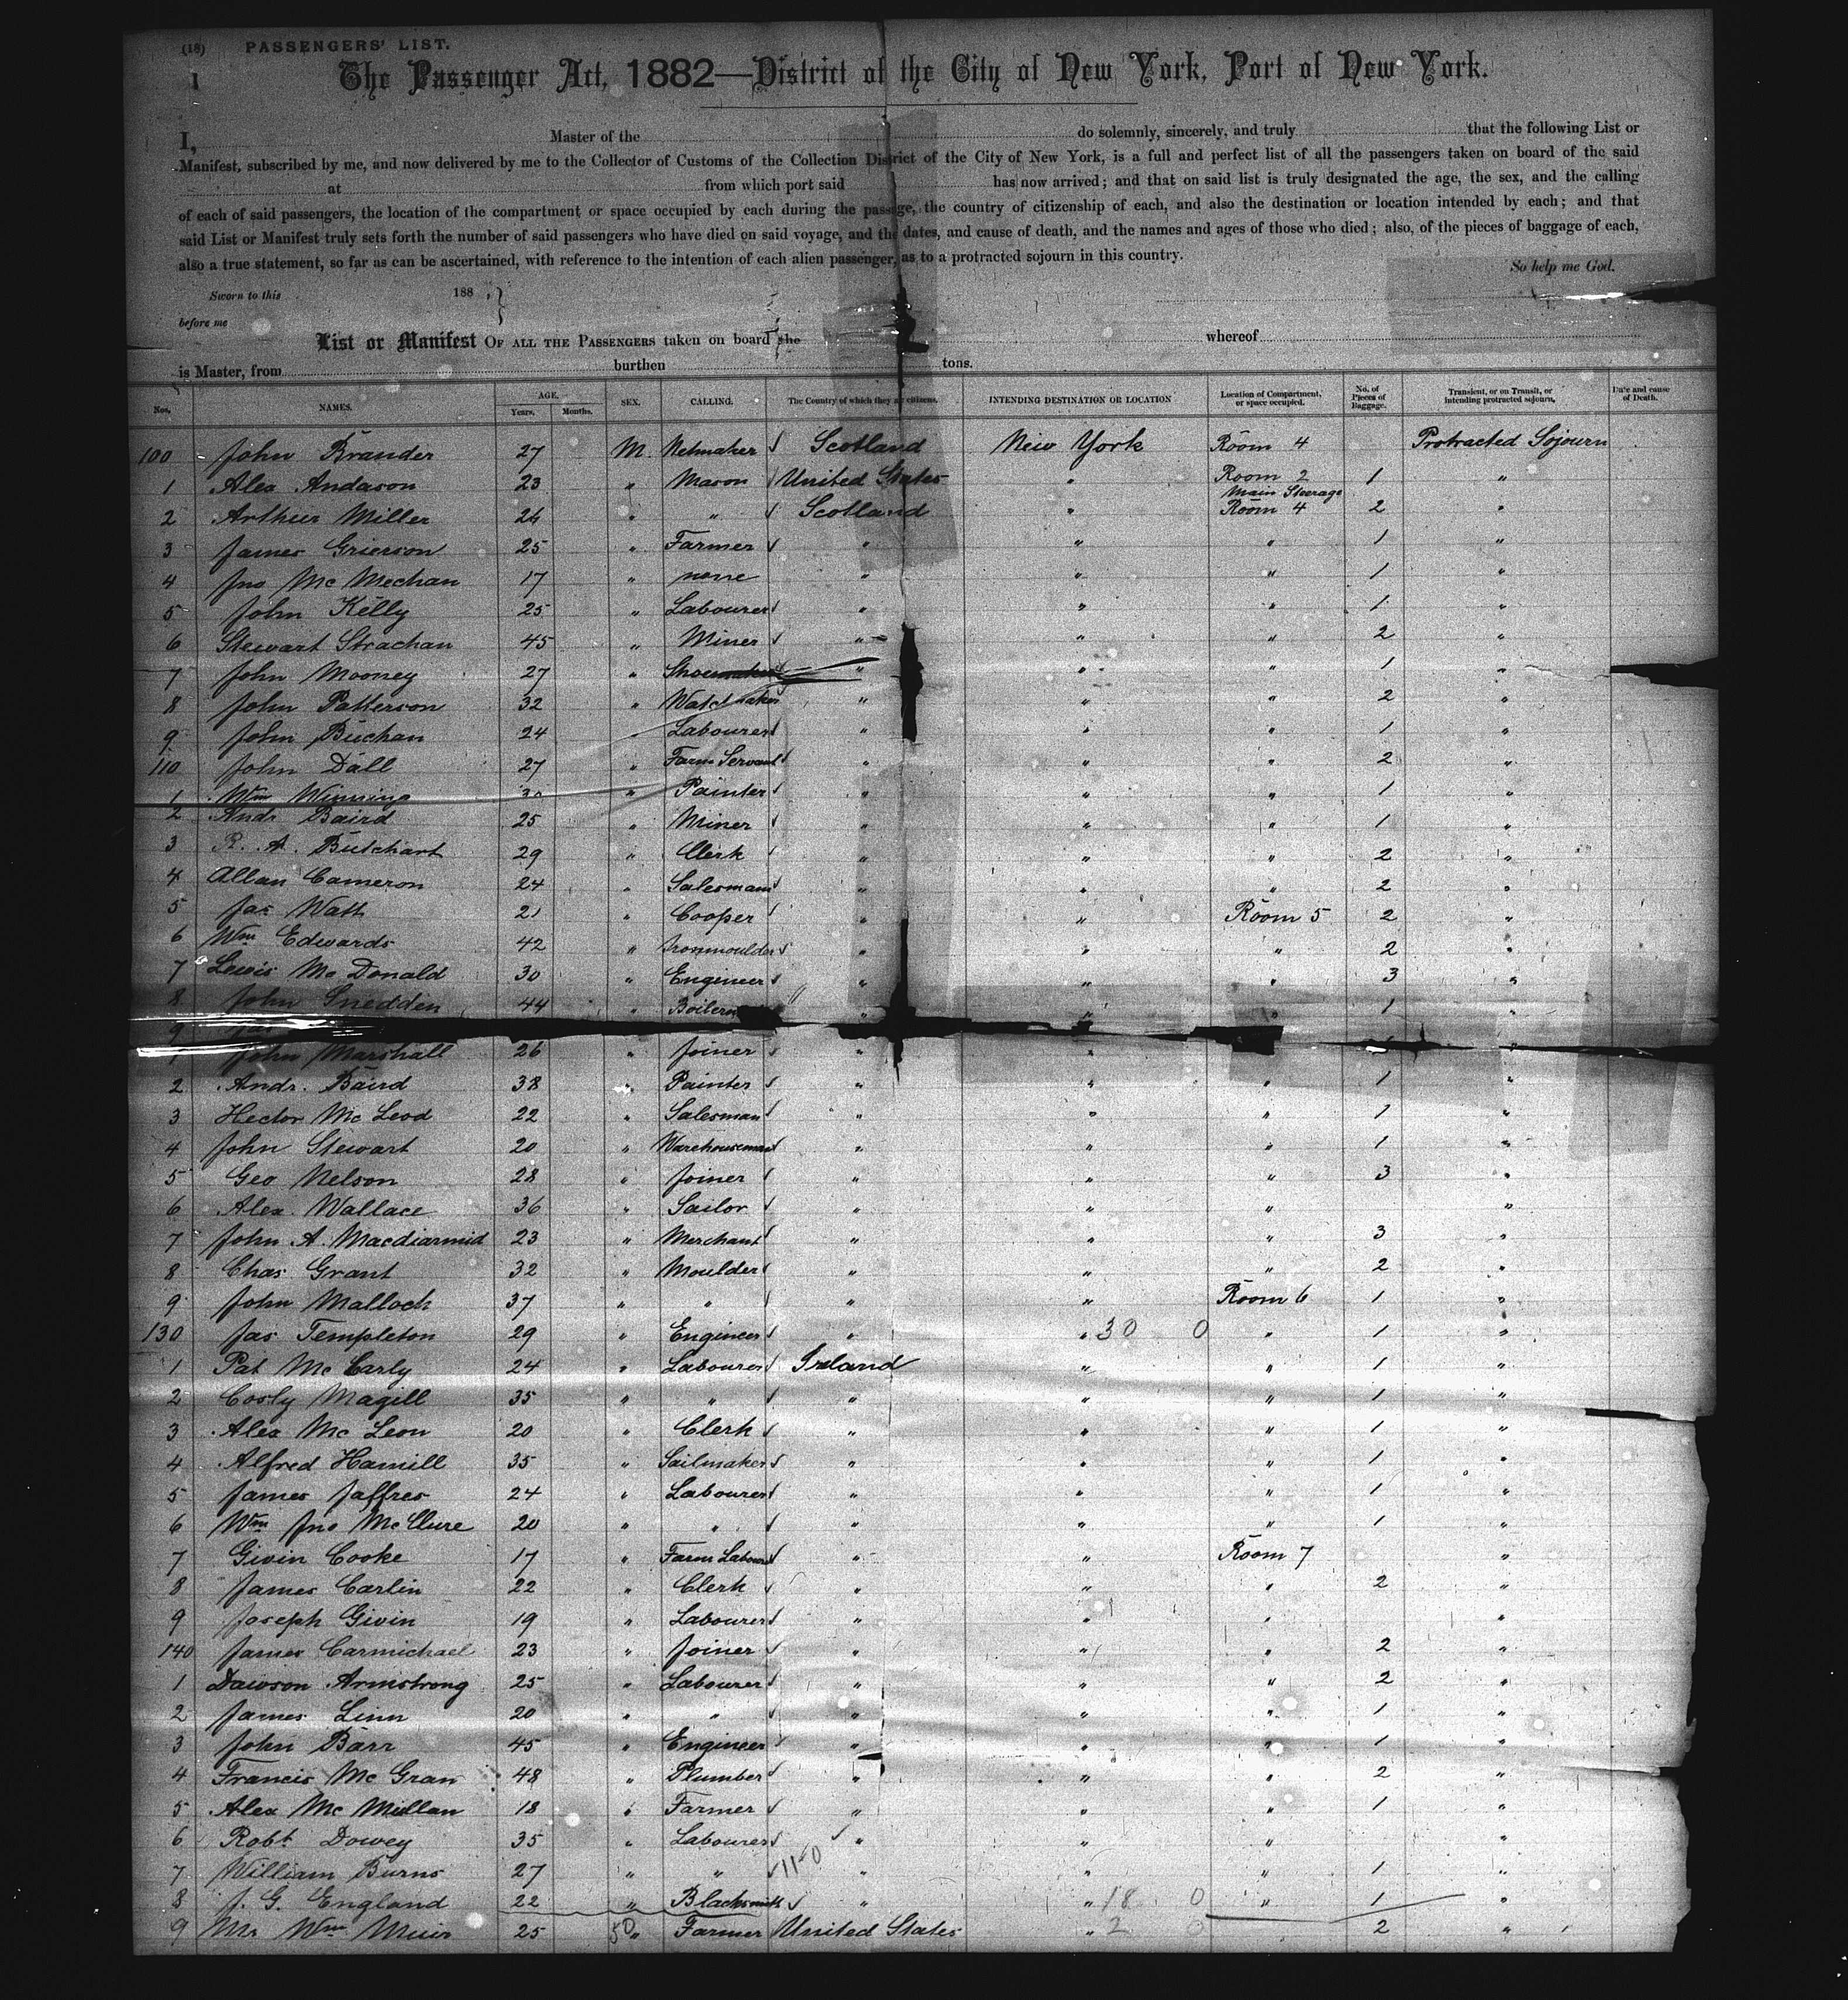 (18) PASSENGERS' LIST.
1 The Passenger Act, 1882—District of the City of New York, Port of New York.
I, Master of the do solemnly, sincerely, and truly that the following List or
Manifest, subscribed by me, and now delivered by me to the Collector of Customs of the Collection District of the City of New York, is a full and perfect list of all the passengers taken on board of the said
at from which port said has now arrived; and that on said list is truly designated the age, the sex, and the calling
of each of said passengers, the location of the compartment or space occupied by each during the passage, the country of citizenship of each, and also the destination or location intended by each; and that
said List or Manifest truly sets forth the number of said passengers who have died on said voyage, and the dates, and cause of death, and the names and ages of those who died; also, of the pieces of baggage of each,
also a true statement, so far as can be ascertained, with reference to the intention of each alien passenger, as to a protracted sojourn in this country.
So help me God.
Sworn to this 188
before me
List or Manifest OF ALL THE PASSENGERS taken on board the whereof
is Master, from burthen tons.
Nos. NAMES. AGE. Years. Months. SEX. CALLING. The Country of which they are citizens. INTENDING DESTINATION OR LOCATION Location of Compartment, or space occupied. No. of Pieces of Baggage. Transient, or on Transit, or intending protracted sojourn. Date and cause of Death.
100 John Brander 27 M. Netmaker Scotland New York Room 4 Protracted Sojourn
1 Alex Andason 23 " Mason United States " Room 2 1 "
Main Steerage
2 Arthur Miller 24 " " Scotland " Room 4 2 "
3 James Grierson 25 " Farmer " " " 1 "
4 Jno Mc Mechan 17 " none " " " 1 "
5 John Kelly 25 " Labourer " " " 1 "
6 Stewart Strachan 45 " Miner " " " 2 "
7 John Mooney 27 " Shoemaker " " " 1 "
8 John Patterson 32 " Watchmaker " " " 2 "
9 John Buchan 24 " Labourer " " " 1 "
110 John Dall 27 " Farm Servant " " " 2 "
1 Wm Winning 30 " Painter " " " 1 "
2 Andr Baird 25 " Miner " " " 1 "
3 R. A. Butchart 29 " Clerk " " " 2 "
4 Allan Cameron 24 " Salesman " " " 2 "
5 Jas Watt 21 " Cooper " " Room 5 2 "
6 Wm Edwards 42 " Ironmoulder " " " 2 "
7 Lewis Mc Donald 30 " Engineer " " " 3 "
8 John Snedden 44 " " " " 1 "
9 Jas
1 John Marshall 26 " Joiner " " "
2 Andr. Baird 38 " Painter " " " 1 "
3 Hector Mc Leod 22 " Salesman " " " 1 "
4 John Stewart 20 " Warehouseman " " " 1 "
5 Geo Nelson 28 " Joiner " " " 3 "
6 Alex. Wallace 36 " Sailor " " " "
7 John A. Macdiarmid 23 " Merchant " " " 3 "
8 Chas Grant 32 " Moulder " " " 2 "
9 John Malloch 37 " " " " Room 6 1 "
130 Jas Templeton 29 " Engineer " " 30 0 " 1 "
1 Pat Mc Carly 24 " Labourer Ireland " " 1 "
2 Cosly Magill 35 " " " " " 1 "
3 Alex Mc Leon 20 " Clerk " " " 1 "
4 Alfred Hamill 35 " Sailmaker " " " 1 "
5 James Jaffres 24 " Labourer " " " 1 "
6 Wm Jno McClure 20 " " " " " 1 "
7 Givin Cooke 17 " Farm Labourer " " Room 7 "
8 James Carlin 22 " Clerk " " " 2 "
9 Joseph Givin 19 " Labourer " " " "
140 James Carmichael 23 " Joiner " " " 2 "
1 Dawson Armstrong 25 " Labourer " " " 2 "
2 James Linn 20 " " " " " 1 "
3 John Barr 45 " Engineer " " " 1 "
4 Francis Mc Gran 48 " Plumber " " " 2 "
5 Alex Mc Mullan 18 " Farmer " " " 1 "
6 Robt Dowey 35 " Labourer " " " "
7 William Burns 27 " " 11-0 " " " 1 "
8 J. G. England 22 " Blacksmith " " 18 0 " 1 "
9 Mr Wm Muir 25 50 " Farmer United States " 2 0 2 "